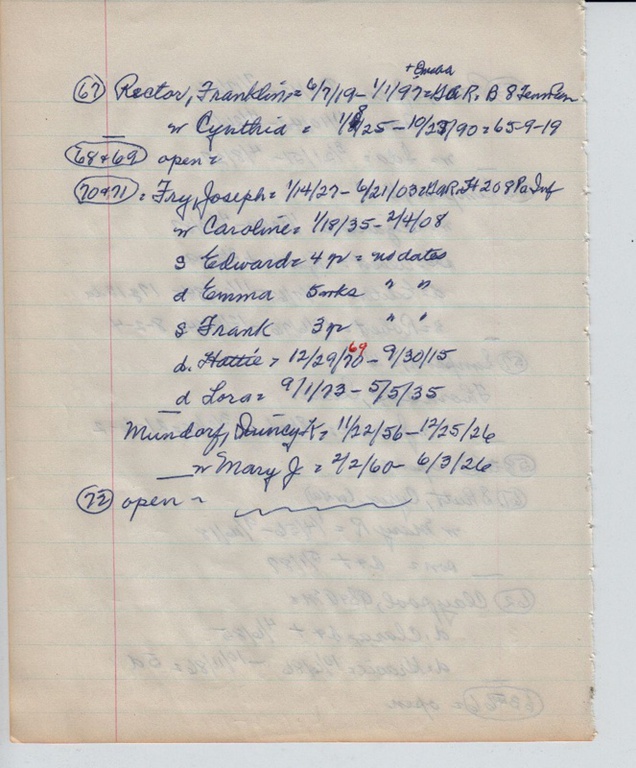 67 Rector, Franklin = 6/7/19 – 1/1/97 = GAR, B 8 Tenn
w Cynthia = 1/8/25 – 10/27/90 = 65-9-19
68 & 69 open =
70 & 71 = Fry, Joseph = 1/14/27 – 6/21/03 = GAR, H 208 Pa Inf
w Caroline = 1/18/35 – 2/4/08
s Edward = 4 yr = no dates
d Emma 5 wks " "
s Frank 3 yr " "
d. Hattie = 12/29/70 69 – 9/30/15
d Lora = 9/1/73 – 5/5/35
Mundorf, Quincy K = 11/22/56 – 12/25/26
w Mary J = 2/2/60 – 6/3/26
72 open =